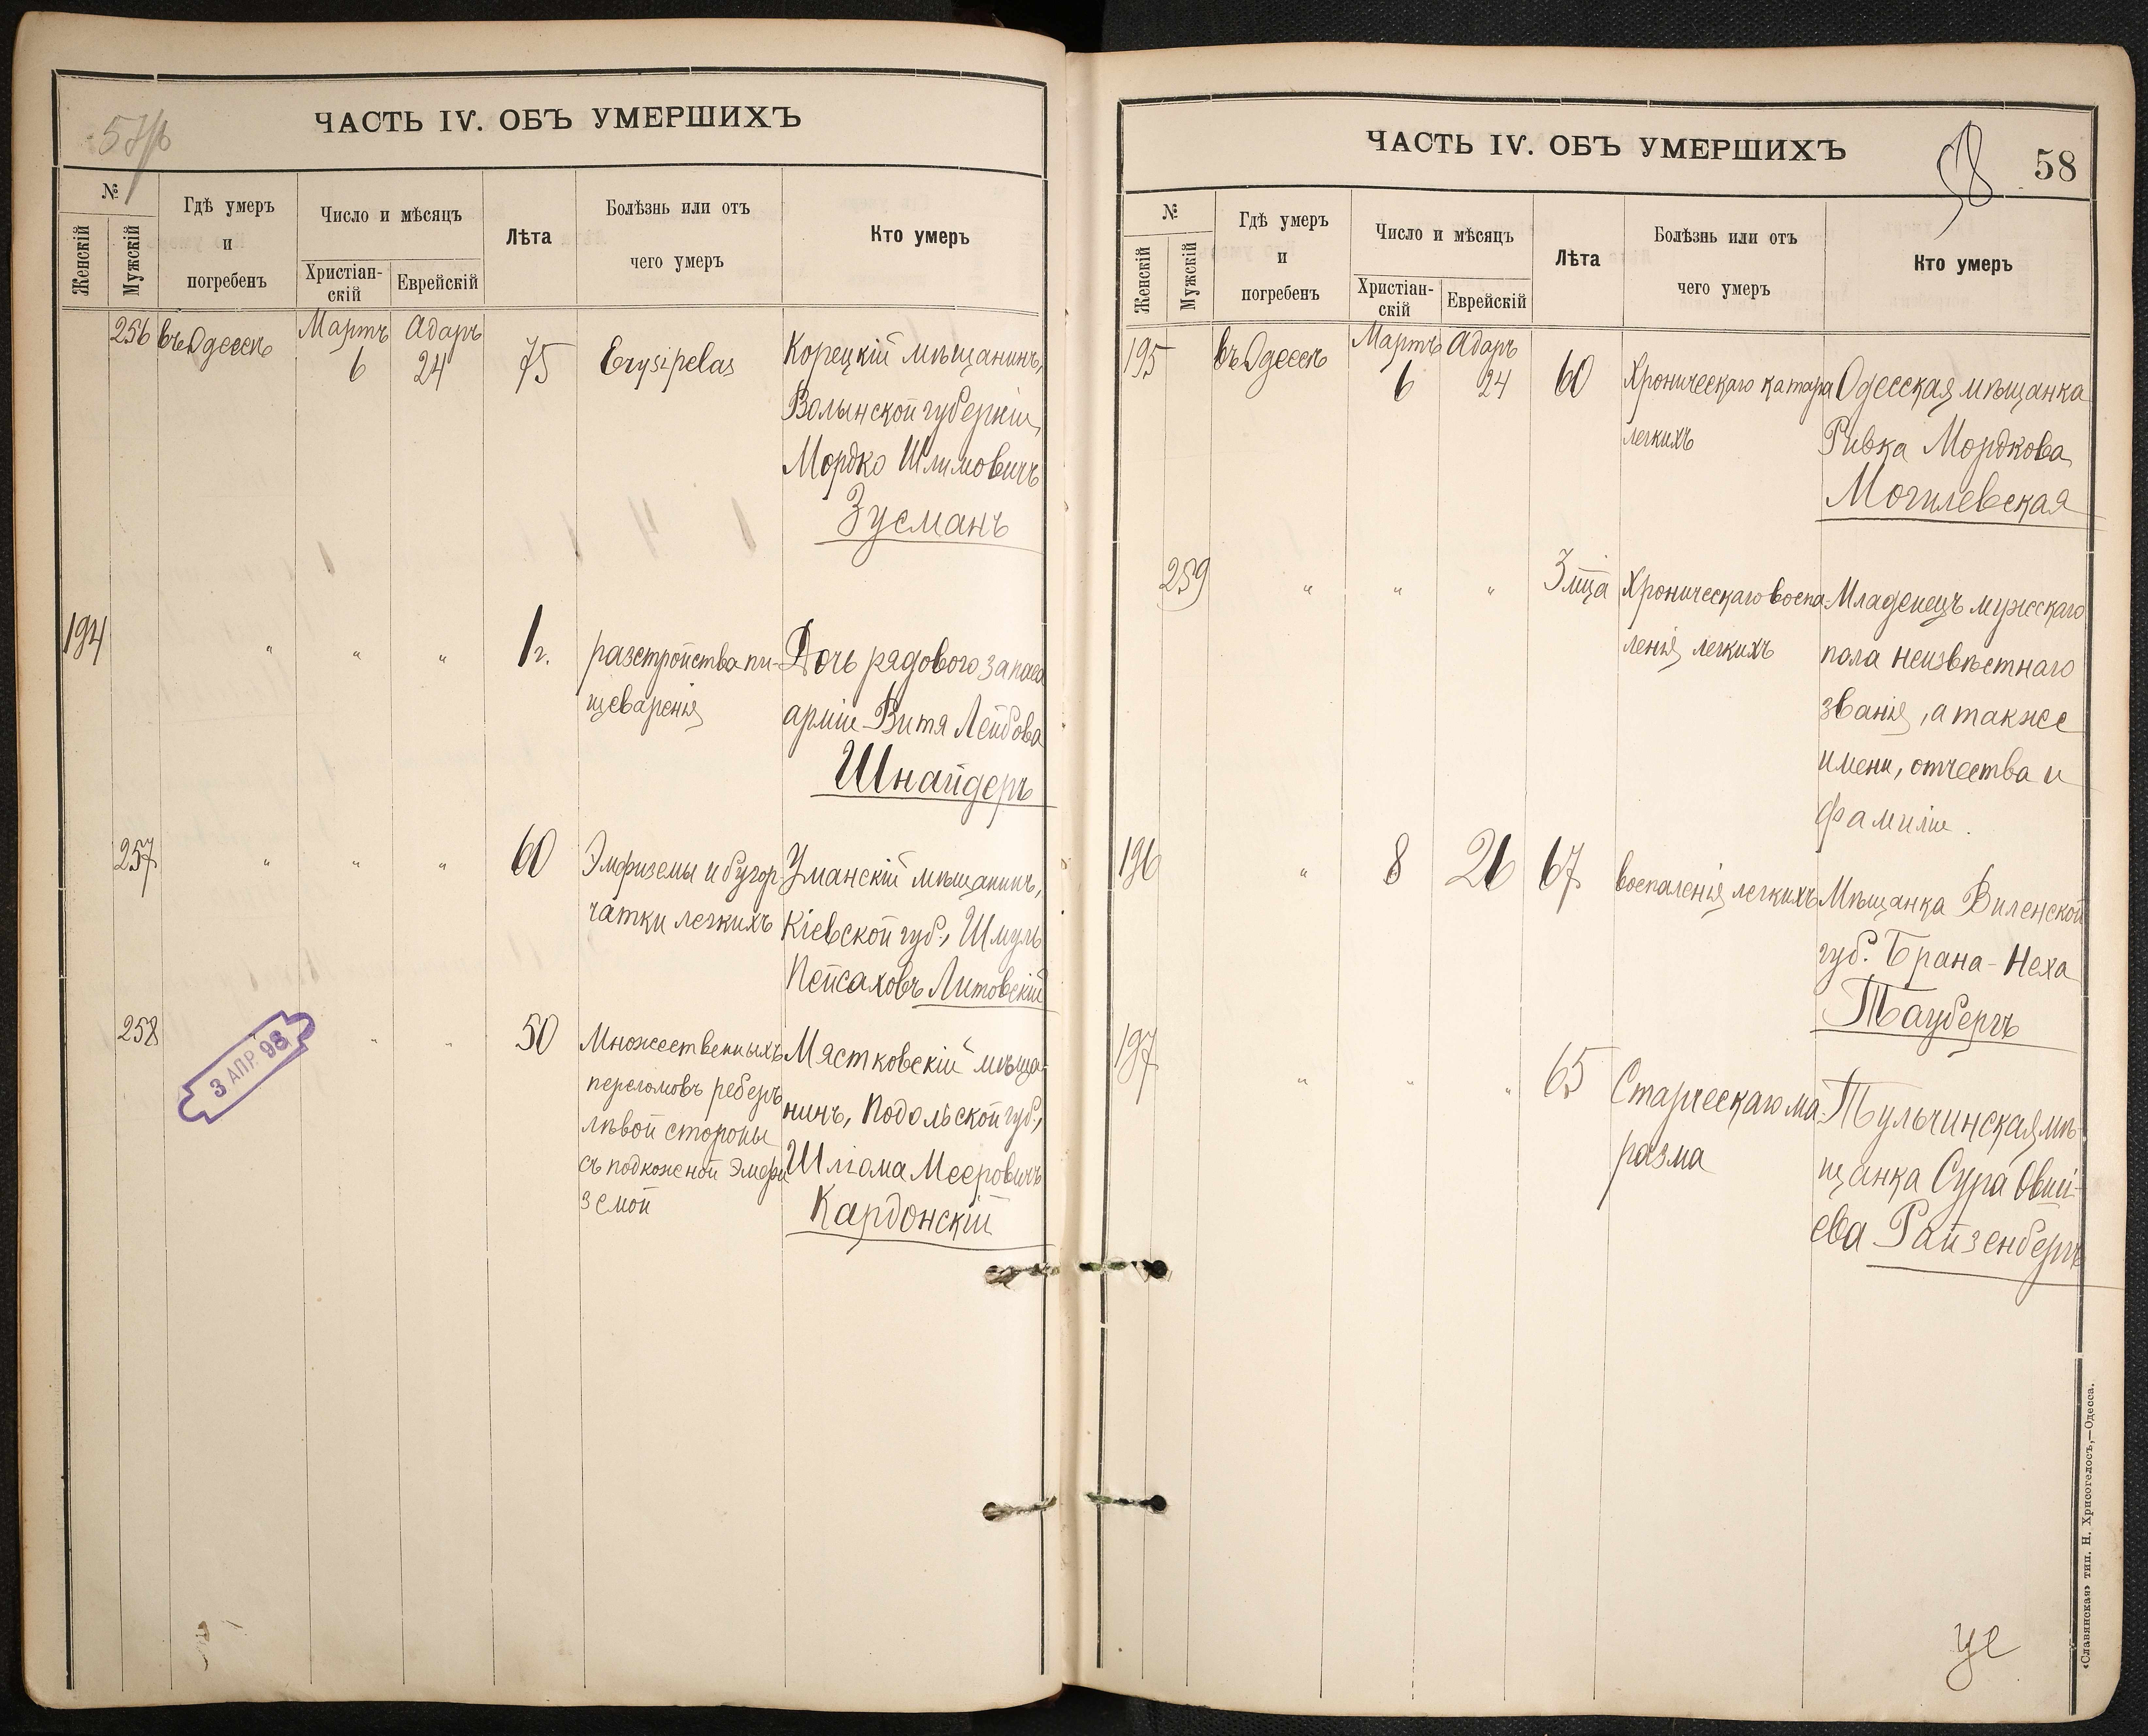 57/б
ЧАСТЬ IV. ОБЪ УМЕРШИХЪ
№
Женскій
Мужскій
Гдѣ умеръ
и
погребенъ
Число и мѣсяцъ
Христіан-
скій
Еврейскій
Лѣта
Болѣзнь или отъ
чего умеръ
Кто умеръ
256 въ Одессѣ Мартъ 6 Адаръ 24 75 Erysipelas Корецкій мѣщанинъ,
Волынской губерніи,
Мордко Шлиовичъ
Зусманъ
194 " " " 1 г. разстройства пи- Дочь рядового запаса
щеваренія арміи Витя Лейбова
Шнайдеръ
257 " " " 60 Эмфиземы и бугор- Уманскій мѣщанинъ,
чатки легкихъ Кіевской губ., Шмуль
Пейсаховъ Литовскій
258 3 АПР. 98 " " 50 Множественныхъ Мястковскій мѣща-
переломовъ реберъ нинъ, Подольской губ.,
лѣвой стороны
съ подкожной эмфи Шліома Мееровичъ
земой Кардонскій
ЧАСТЬ IV. ОБЪ УМЕРШИХЪ
58
58
№
Женскій
Мужскій
Гдѣ умеръ
и
погребенъ
Число и мѣсяцъ
Христіан-
скій
Еврейскій
Лѣта
Болѣзнь или отъ
чего умеръ
Кто умеръ
195 въ Одессѣ Мартъ 6 Адаръ 24 60 Хроническаго катара Одесская мѣщанка
легкихъ Ривка Мордкова
Могилевская
259 " " " 3 мца Хроническаго воспа- Младенецъ мужскаго
ленія легкихъ пола неизвѣстнаго
званія, а также
имени, отчества и
фамиліи.
196 " 8 26 67 воспаленія легкихъ Мѣщанка Виленской
губ. Брана-Неха
Таубергъ
197 " " " 65 Старческаго ма- Тульчинская мѣ-
разма щанка Сура Овші-
ева Райзенбергъ
«Славянская» тип. Н. Хрисогелосъ,—Одесса.